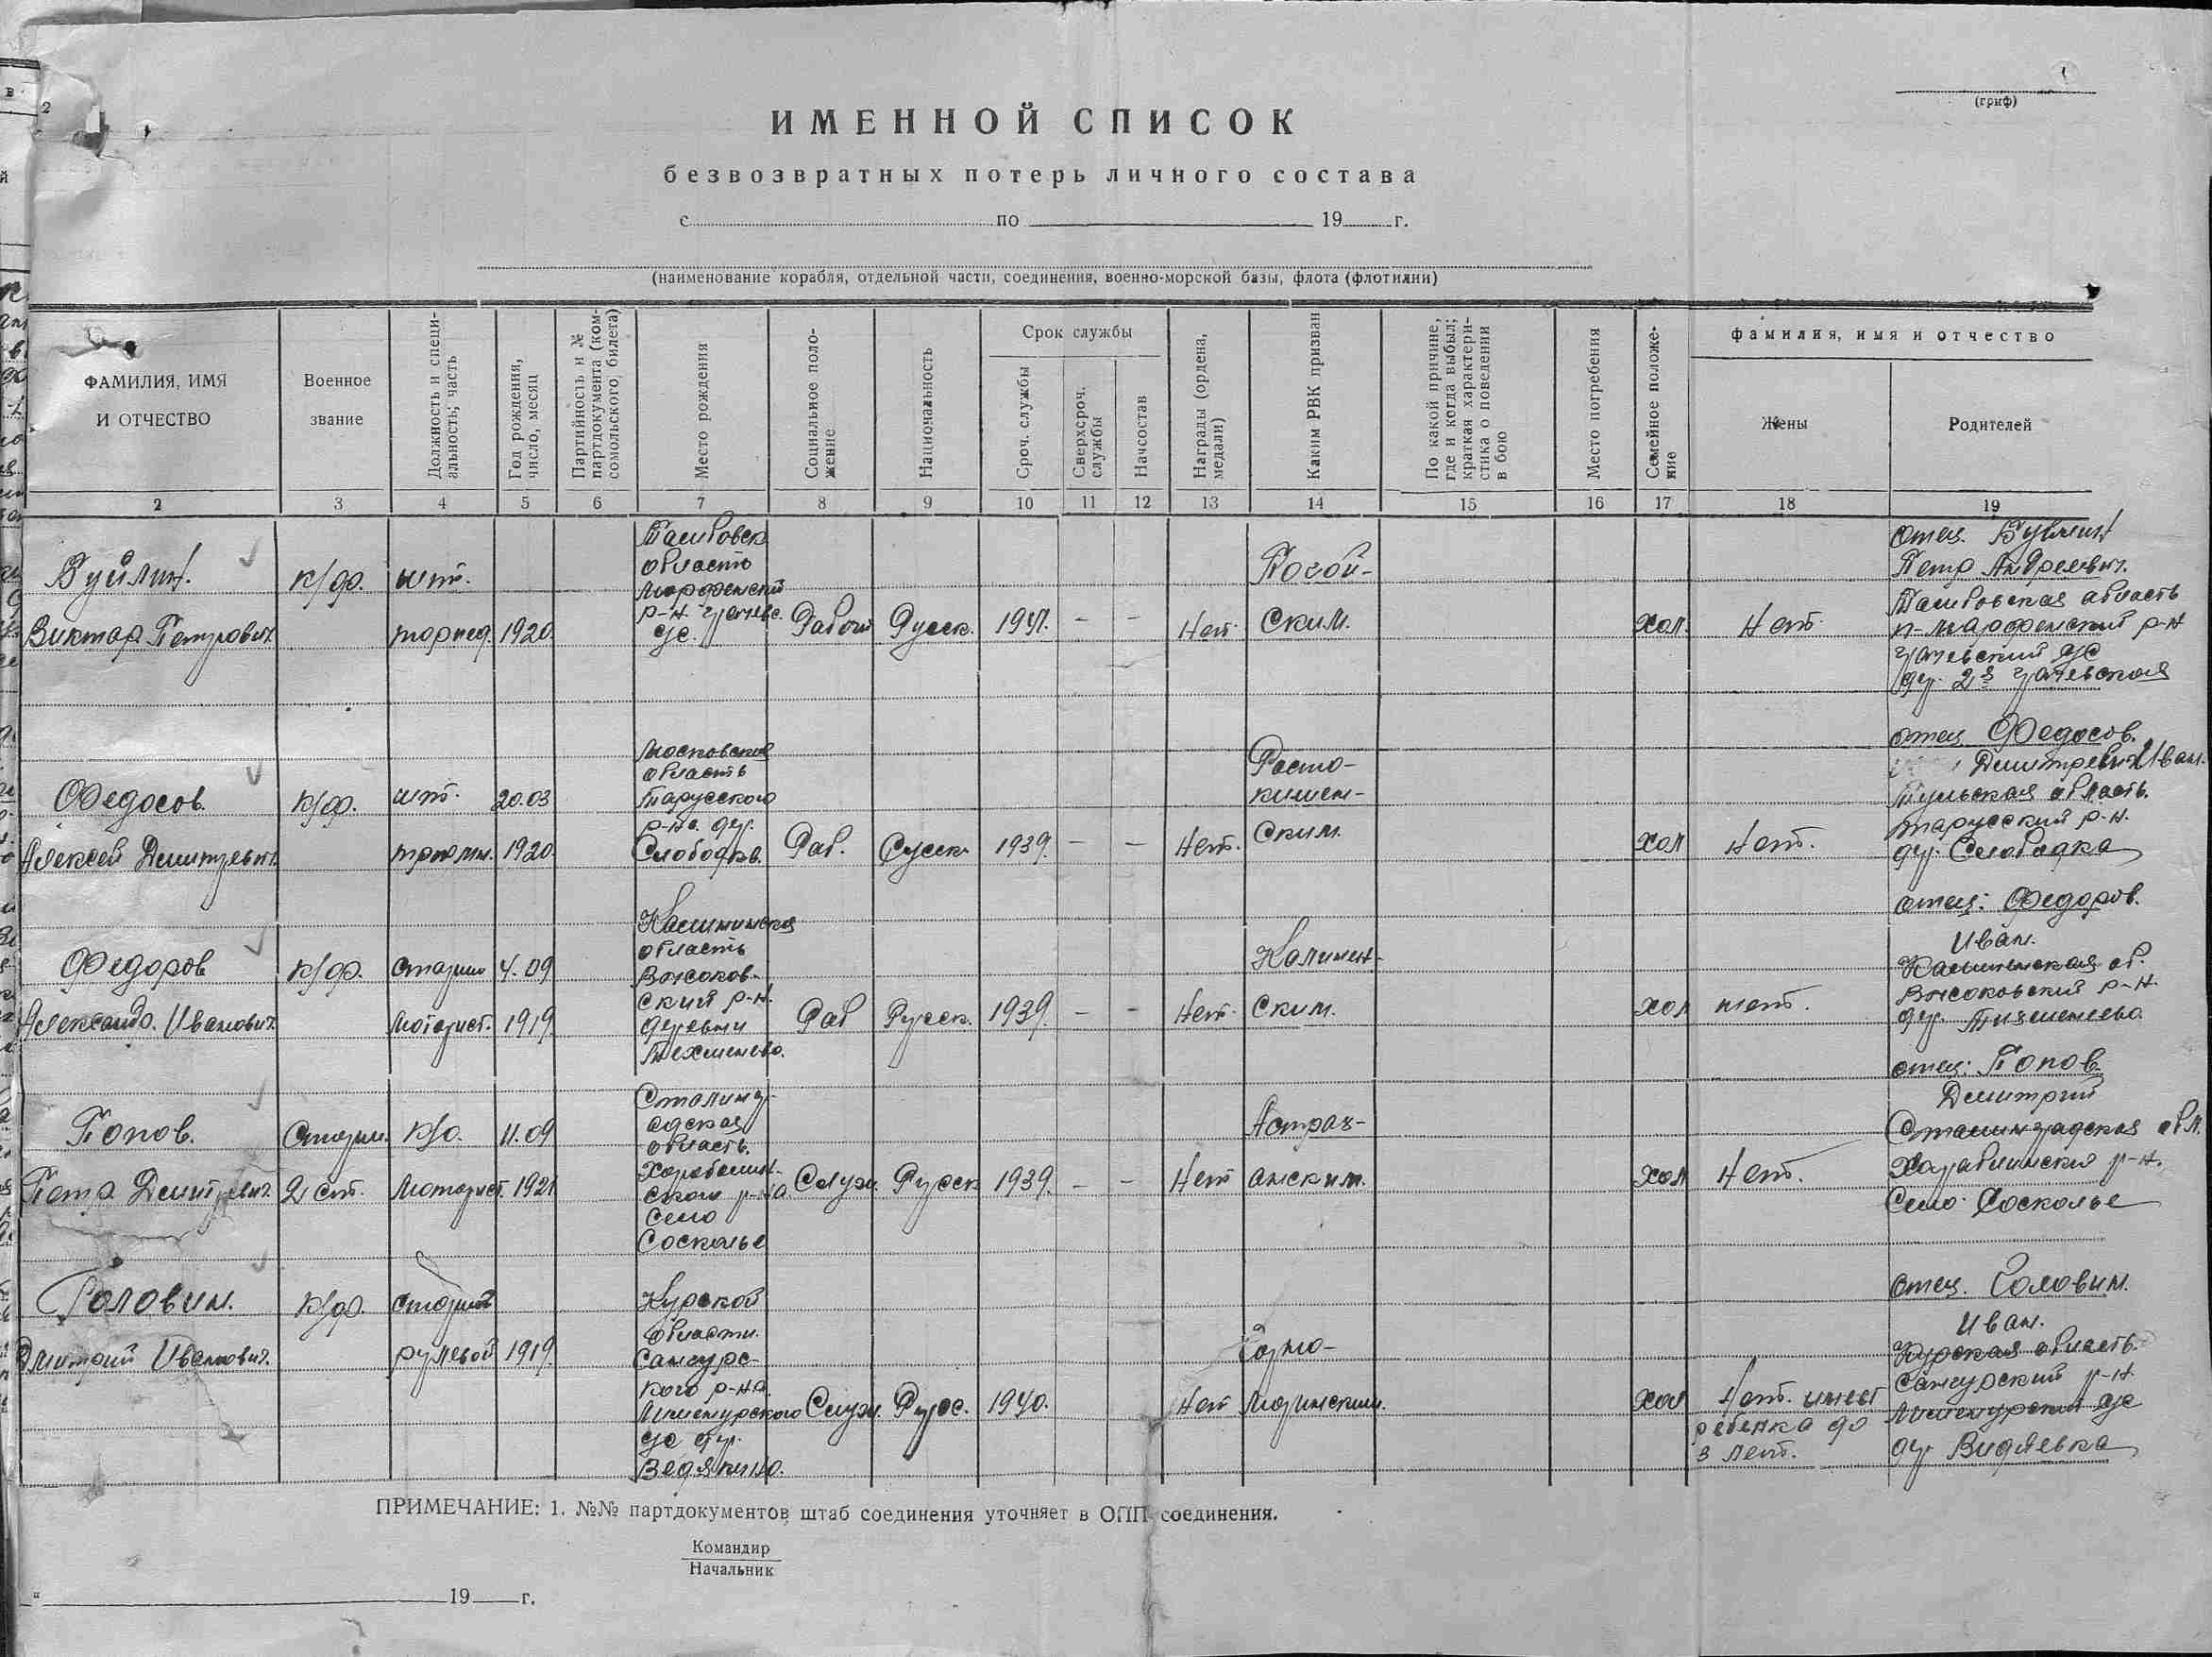 (гриф)
ИМЕННОЙ СПИСОК
безвозвратных потерь личного состава
с по 19 г.
(наименование корабля, отдельной части, соединения, военно-морской базы, флота (флотилии)
ФАМИЛИЯ, ИМЯ
И ОТЧЕСТВО
Военное
звание
Должность и специ-
альность, часть
Год рождения,
число, месяц
Партийность и №
партдокумента (ком-
сомольского билета)
Место рождения
Социальное поло-
жение
Национальность
Срок службы
Сроч. службы
Сверхсроч.
службы
Начсостав
Награды (ордена,
медали)
Каким РВК призван
По какой причине,
где и когда выбыл;
краткая характери-
стика о поведении
в бою
Место погребения
Семейное положе-
ние
фамилия, имя и отчество
Жены
Родителей
2 3 4 5 6 7 8 9 10 11 12 13 14 15 16 17 18 19
Виктор Петрович.
к/ф.
торпед.
1920.
область
р-н
Рабоч
Русск.
1941.
- -
Нет.
ским.
хол.
Нет.
отец.
Петр Андреевич.
Тамбовская область
р-н
Федосов.
Алексей Дмитриевич.
к/ф.
20.03
1920.
Московская
область
Тарусского
р-на. дер.
Слободка.
Раб.
Русск.
1939.
- -
Нет.
Росто-
кинен-
ским.
хол
Нет.
отец Федосов.
Дмитревич Иван.
Тульская область.
тарусский р-н.
дер. Слободка
Федоров
Александр. Иванович.
к/ф.
старши
моторист.
4.09
1919.
Калининская
область
Высоков-
ский р-н.
деревни
Раб
Русск.
1939.
- -
Нет.
Калинин-
ским.
хол
нет.
отец: Федоров.
Иван.
Калининская об.
Высоковский р-н.
дер.
Попов.
Петр Дмитревич.
Старш.
2 ст.
к/о.
моторист.
11.09
1921
Сталингр-
адская
область.
Харабалин-
ского р-на
село
Сосколье
Служ.
Русск
1939.
- -
Нет
Астрах-
анским.
хол
Нет.
отец: Попов.
Дмитрий
Сталинградская обл.
Харабалинский р-н.
Село Сосколье
Головин.
Дмитрий Иванович.
к/ф.
старший
рулевой
1919.
Курской
области.
кого р-на.
дер.
Ведякино.
Служ.
Русс.
1940.
Нет
хол
Нет. имеет
ребенка до
3 лет.
отец. Головин.
Иван.
Курская область.
р-н
дер Видяевка
ПРИМЕЧАНИЕ: 1. №№ партдокументов штаб соединения уточняет в ОПП соединения.
Командир
Начальник
" 19 г.